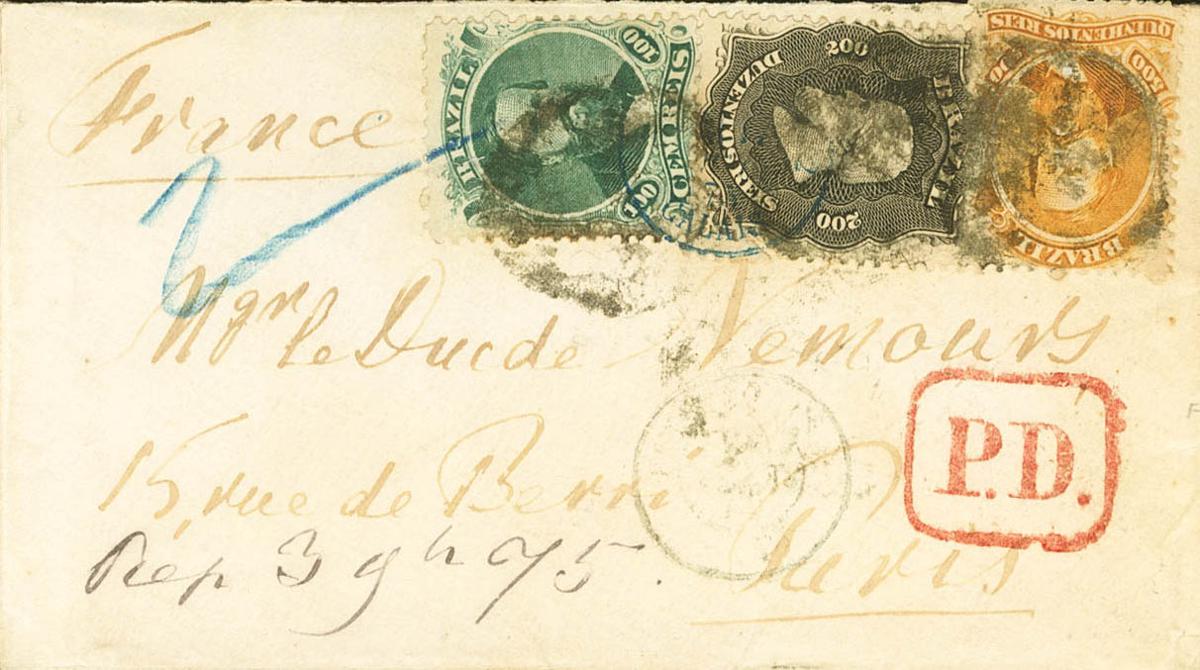 France
BRAZIL
100
CEM REIS
100
BRAZIL
200
DUZENTOS REIS
200
QUINHENTOS REIS
500
BRAZIL
2
Mgr le Duc de Nemours
15, rue de Berri
Paris
P.D.
Rép 3 9h 75.